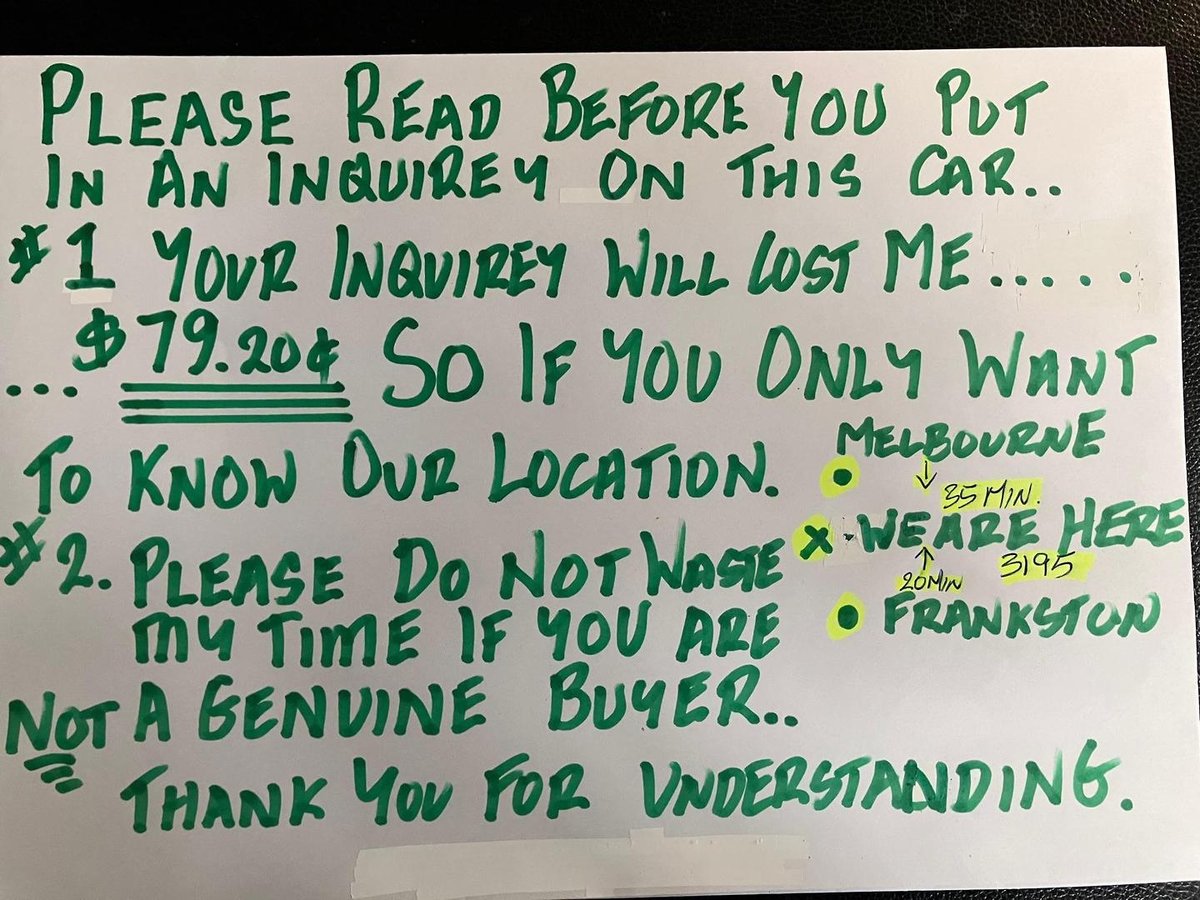 PLEASE READ BEFORE YOU PUT
IN AN INQUIREY ON THIS CAR..
#1 YOUR INQUIREY WILL COST ME......
...$79.20¢ SO IF YOU ONLY WANT
TO KNOW OUR LOCATION.
MELBOURNE
↓ 35 MIN.
x - WE ARE HERE
↑ 20 MIN 3195
FRANKSTON
#2. PLEASE DO NOT WASTE
MY TIME IF YOU ARE
NOT A GENUINE BUYER..
THANK YOU FOR UNDERSTANDING.